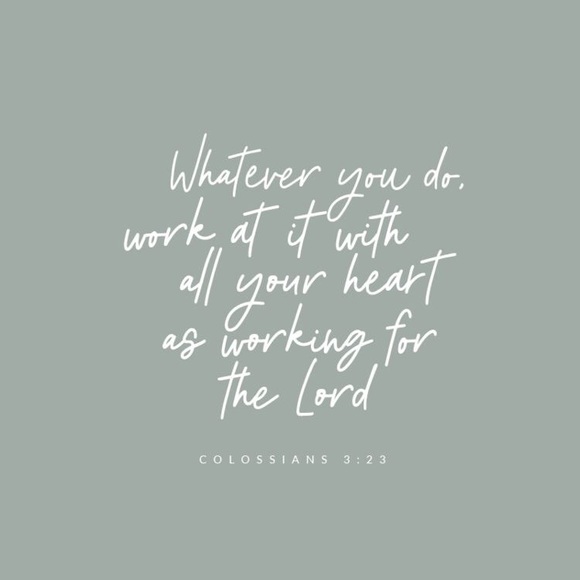 Whatever you do,
work at it with
all your heart
as working for
the Lord
COLOSSIANS 3:23